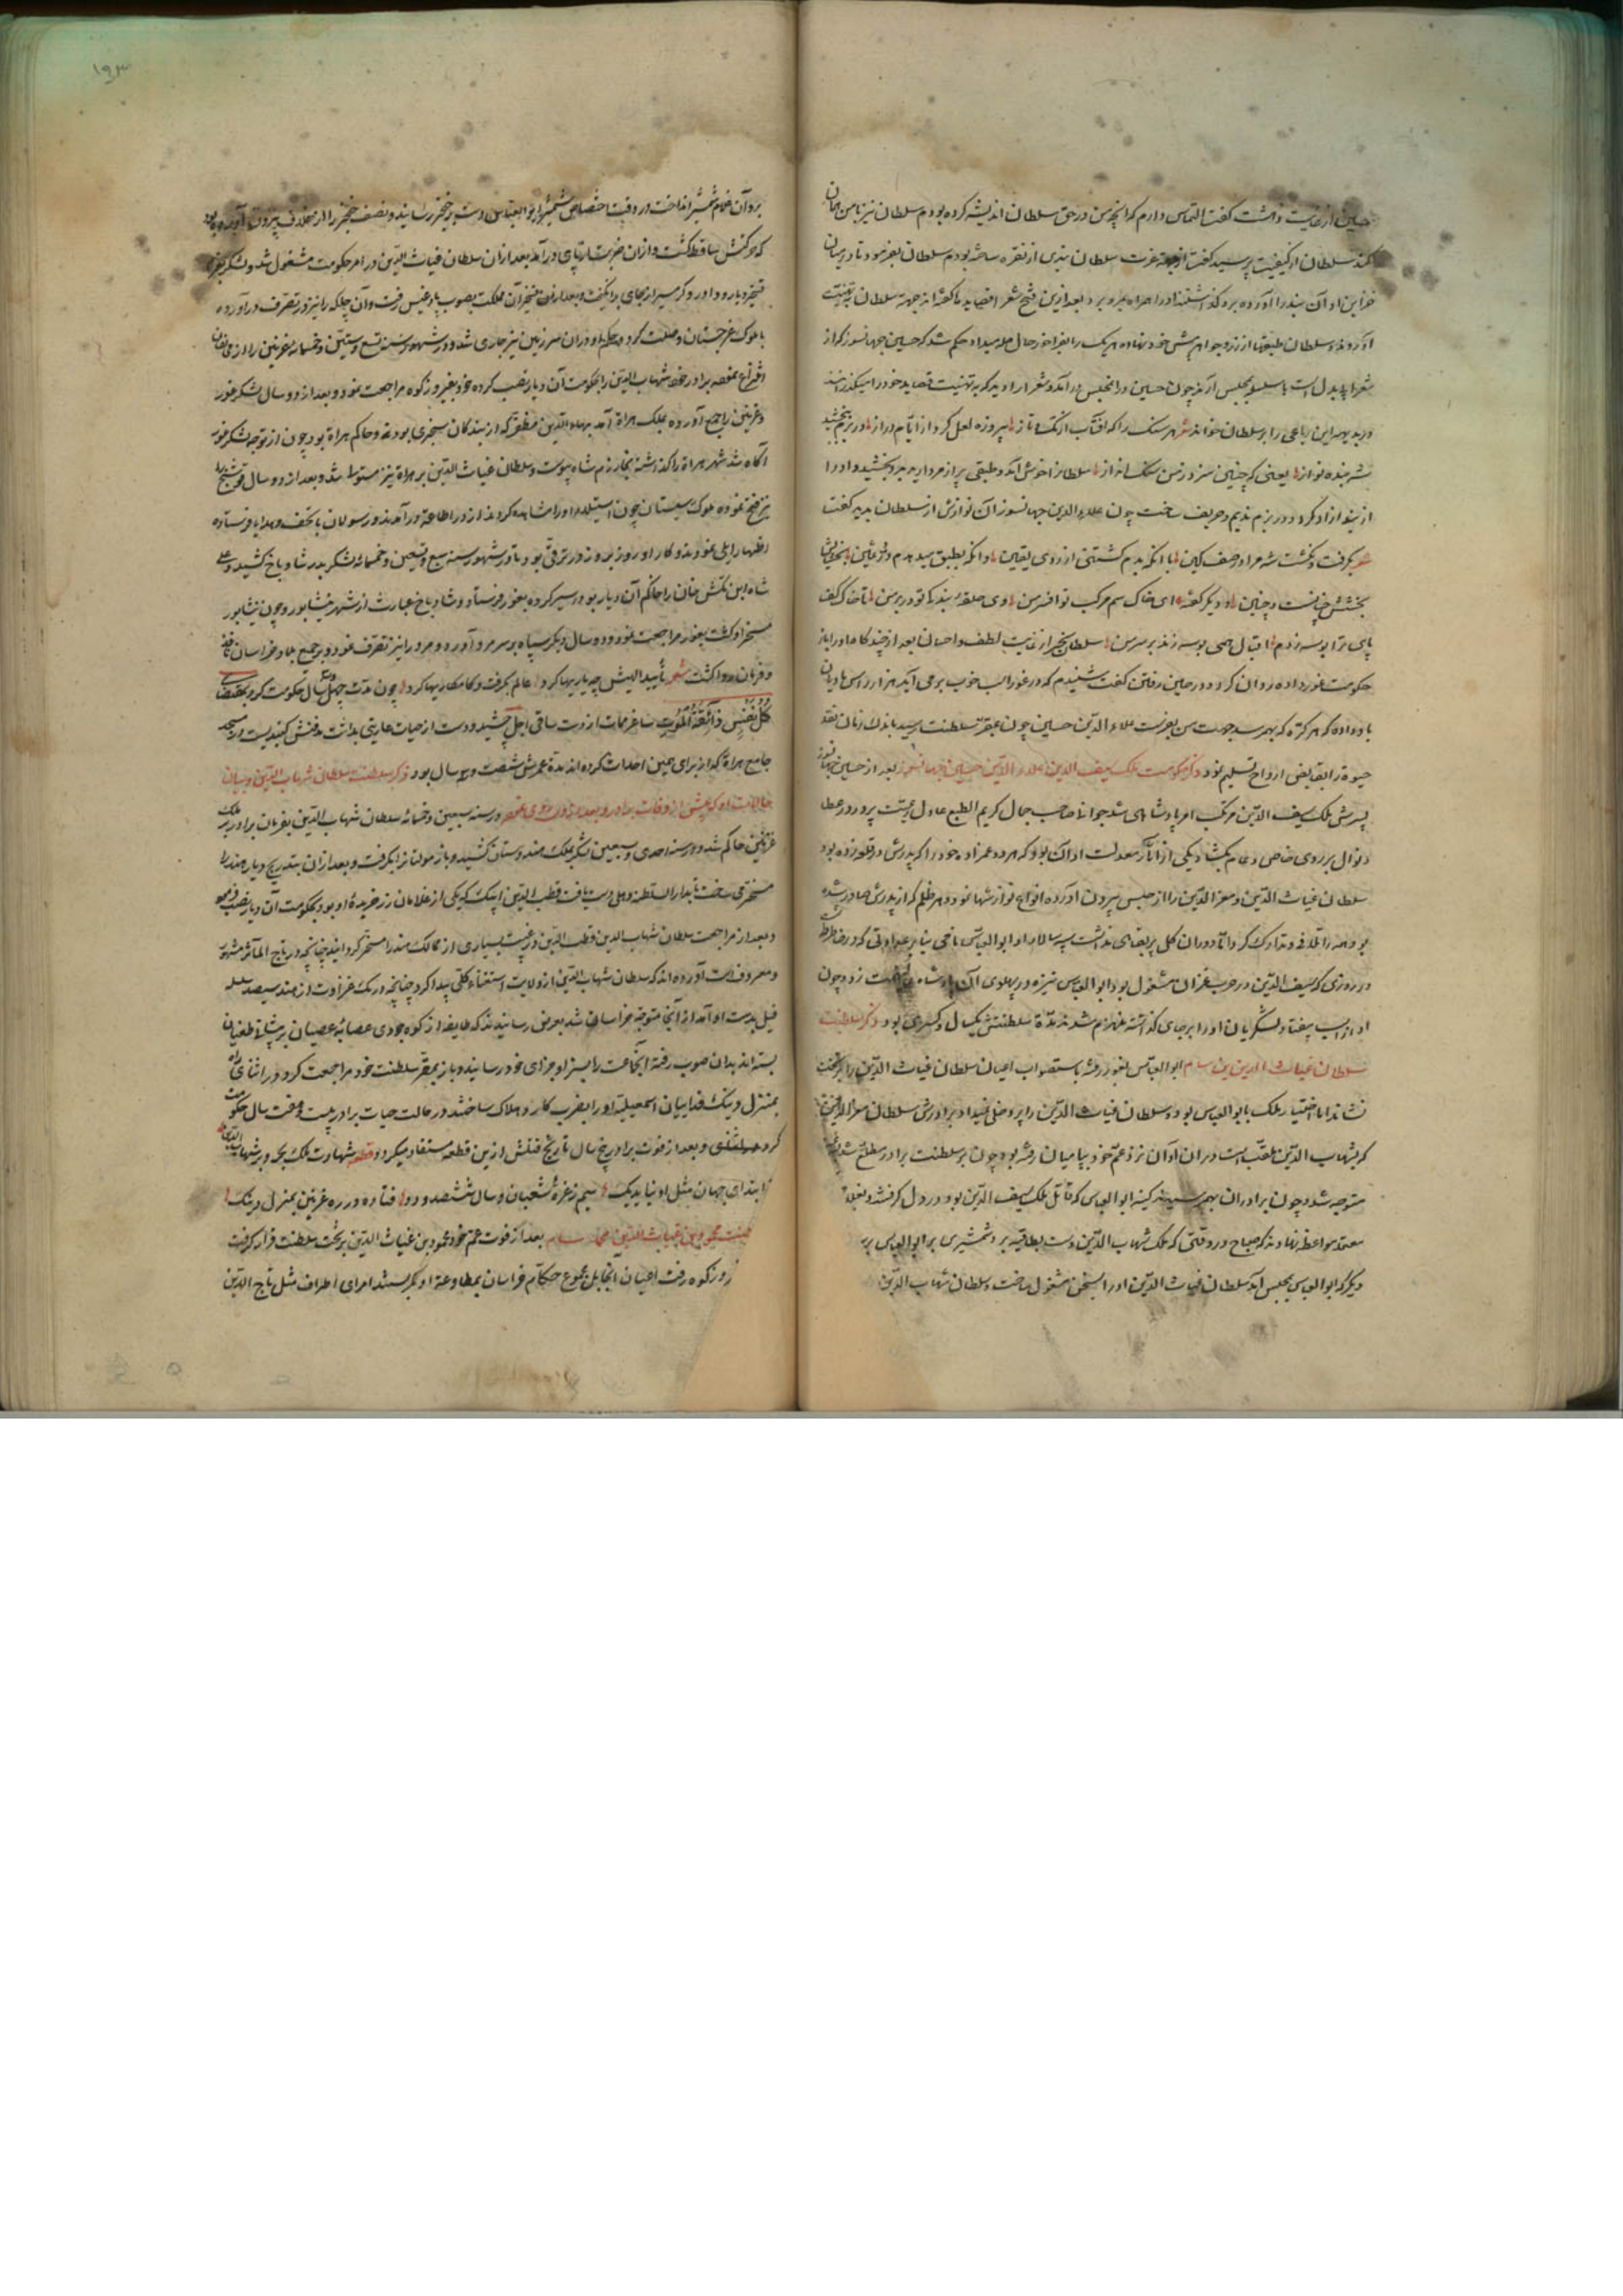 حسین از غایت دهشت گفت التماس دارم که آنچه من در حق سلطان اندیشه کرده بودم سلطان نیز با من همان
کند سلطان از کیفیت پرسید گفت از جهة عزت سلطان بندی از نقره ساخته بودم سلطان بفرمود تا در زمان
خزاین او آن بند را آورده برو گذاشتند او را همراه مرو برد بعد ازین فتح شعرا قصاید تا گفته از جهة سلطان به تهنیت
آوردند و سلطان طبقها از زر و جواهر پیش خود نهاده هر یک را بفراخور حال صله میداد حکم شد که حسین جهانسوز که از
شعرای بدل است با سلسله بمجلس آرند چون حسین در آن مجلس درآمد و شعرا را دید که به تهنیت قصاید خود را میگذرانند
در بدیهه این رباعی را بر سلطان خواند شعر هر سنک را که آفتاب از تک و تاز پیروزه لعل کرد از ایام دراز در بزم ببخشد
شه بنده نواز یعنی که چنین سزد ز من سنک انداز سلطان را خوش آمد و طبقی پر از مروارید بدو بخشید و او را
از بند آزاد کرد و در بزم ندیم و حریف ساخت چون علاء الدین جهانسوز آن نوازش از سلطان بدید گفت
شعر بگرفت و نکشت شه مرا در صف کین با آنکه بدم کشتنی از روی یقین و آنکه بطبق میدهدم در ثمین بخشایش
بخشش چنانست و چنین و دیگر گفته ای خاک سم مرکب تو افسر من وی حلقه بندگی تو در بر من تا خاک کف
پای ترا بوسه زدم اقبال همی بوسه زند بر سر من سلطان سنجر از غایت لطف و احسان بعد از چند گاه او را باز
حکومت غور داده روان کرد و در حین رفتن گفت شنیدم که در غور اسب خوب بر می آید هزار راس مادیان
با و داده که هر کره که بهم رسد جهت من بفرست علاء الدین حسین چون بمقر سلطنت رسید باندک زمان نقد
حیوة را بقابض ارواح تسلیم نمود ذکر حکومت ملک سیف الدین علاء الدین حسین جهانسوز بعد از حسین جهانسوز
پسرش ملک سیف الدین مرتکب امر پادشاهی شد جوانی صاحب جمال کریم الطبع عادل رعیت پرور در عطا
و نوال بر روی خاص و عام بگشاد یکی از آثار معدلت او آن بود که هر دو عمزاده خود را که پدرش در قلعه زده بود
سلطان غیاث الدین و معز الدین را از حبس بیرون آورده انواع نوازشها نمود و هر ظلم که از پدرش صادر شده
بود همه را تلافی و تدارک کرد اما دوران کل بر بقای نداشت سپه سالار او ابو العباس ناحی بنابر عداوتی که در خاطر داشت
در روزی که سیف الدین در حرب غزان مشغول بود ابو العباس نیزه در پهلوی آن پادشاه زد چون
او از اسب بیفتاد لشکریان او را بر جای گذاشته منهزم شدند مدة سلطنتش یکسال و کسری بود ذکر سلطنت
سلطان غیاث الدین بن سام ابو العباس بغور رفته با ستصواب اعیان سلطان غیاث الدین را بر تخت
نشاند اما اختیار ملک با ابو العباس بود و سلطان غیاث الدین را پر دخلی نمیداد برادرش سلطان معز الدین
که بشهاب الدین ملقب است در ان آوان نزد عم خود ببامیان رفته بود چون بر سلطنت برادر مطلع شد
متوجه شد و چون برادران بهم رسیدند کینه ابو العباس که قاتل ملک سیف الدین بود در دل گرفتند و بغلا
معتمد مواعظ نهادند که صباح در وقتی که ملک شهاب الدین دست بطاقیه برد شمشیری بر ابو العباس برند
دیگر که ابو العباس بمجلس آمد سلطان غیاث الدین او را بسخن مشغول ساخت و سلطان شهاب الدین
برد آن غلام شمشیر انداخت در وقت اختصاص شمشیر ابو العباس دست بر خنجر رسانید و نصف خنجر را از غلاف بیرون آورده بود
که حرکتش ساقط گشت و از ان ضربت از پای درآمد بعد از ان سلطان غیاث الدین در امر حکومت مشغول شد و لشکر
تسخیر دیار داور و گرمسیر از جای برانگیخت و بعد از تسخیر آن مملکت بصوب بادغیس رفت و آن جلکه را نیز در تصرف درآورده
با ملوک غرجستان وصلت کرد و حکم او در ان سرزمین نیز جاری شد و در شهور سنه تسع و ستین و خمسمائه غزنین را از روی
انتزاع نموده برادر خود شهاب الدین را بحکومت آن دیار نصب کرده خود بفیروزکوه مراجعت نمود و بعد از دو سال لشکر غور
و غزنین را جمع آورده بملک هراة آمد بهاء الدین طغرل که از بندکان سنجری بوده و حاکم هراة بود چون از توجه لشکر غور
آگاه شد شهر هراة را گذاشته بخوارزم شاه پیوست و سلطان غیاث الدین بر هراة نیز مستولی شد و بعد از دو سال قوشنج را
نیز فتح نموده ملوک سیستان چون استیلاء او را مشاهده کردند از در اطاعة درآمدند و رسولان با تحف و هدایا فرستاده
اظهار ایلی نمودند و کار او روز بروز در ترقی بود تا در شهور سنه سبع و تسعین و خمسمائه لشکر بدر شادیاخ کشید و علی
شاه ابن تکش خان را حاکم آن دیار بود سیر کرده بغور فرستاد و شادیاخ عبارت از شهر نیشابور و چون نیشابور
مسخر او گشت بغور مراجعت نمود و دو سال دیگر سپاه بر سر مرو آورد و مرو را نیز تصرف نمود و بر جمیع بلاد خراسان نافذ
و فرمان روا گشت شعر تأیید الهیش چه یاریها کرد عالم بگرفت و کامکاریها کرد چون مدت چهل سال حکومت کرد بمقتضای
كُلُّ نَفْسٍ ذَائِقَةُ الْمَوْتِ ساغر ممات از دست ساقی اجل چشید و دست از حیات عاریتی بداشت مدفنش گنبدیست در مسجد
جامع هراة که از برای همین احداث کرده اند مدة عمرش شصت و سه سال بود ذکر سلطنت سلطان شهاب الدین و بیان
حالات او که پیش از وفات برادر و بعد از ان روی نمود در سنه سبعین و خمسمائه سلطان شهاب الدین بفرمان برادر بر ملک
غزنین حاکم شد و در سنه احدی و سبعین لشکر بملک هندوستان کشید و باز مولتان را بگرفت و بعد از ان بتدریج دیار هند را
مسخر می ساخت تا بدار السلطنه دهلی دست یافت قطب الدین ایبک که یکی از غلامان زر خریدهٔ او بود بحکومت آن دیار نصب فرمود
و بعد از مراجعت سلطان شهاب الدین قطب الدین در غیبت بسیاری از ممالک هند را مسخر گردانید چنانچه در تاج المآثر مشهور
و معروفست آورده اند که سلطان شهاب الدین از ولایت استغناء کلی پیدا کرد چنانچه در یک غزا وت از هند سیصد سلسله
فیل بدست او آمد از آنجا متوجه خراسان شد بعرض رسانیدند که طایفه از کوه جودی عصابهٔ عصیان بر پیشانئ طغیان
بسته اند بدان صوب رفته آنجماعت را بسزا و جزای خود رسانید و باز بمقر سلطنت خود مراجعت کرد و در اثنای راه
بمنزل دمیک فداییان اسمعیلیه او را بضرب کارد هلاک ساختند در حالت حیات برادر بیست و هفت سال حکومت
کرد و بعد از فوت برادر پنج سال تاریخ قتلش ازین قطعه مستفاد میگردد قطعه شهادت ملک بحر و بر شهاب الدین
کز ابتدای جهان مثل او نیاید یک سیم ز غره شعبان و سال ششصد و دو فتاد در ره غزنین بمنزل دمیک
سلطنت محمود بن غیاث الدین محمد سام بعد از فوت عم خود محمود بن غیاث الدین بر تخت سلطنت قرار گرفت
فیروزکوه رفت اعیان آنجا بل مجموع حکام خراسان بمطاوعة او کمر بستند امرای اطراف مثل تاج الدین